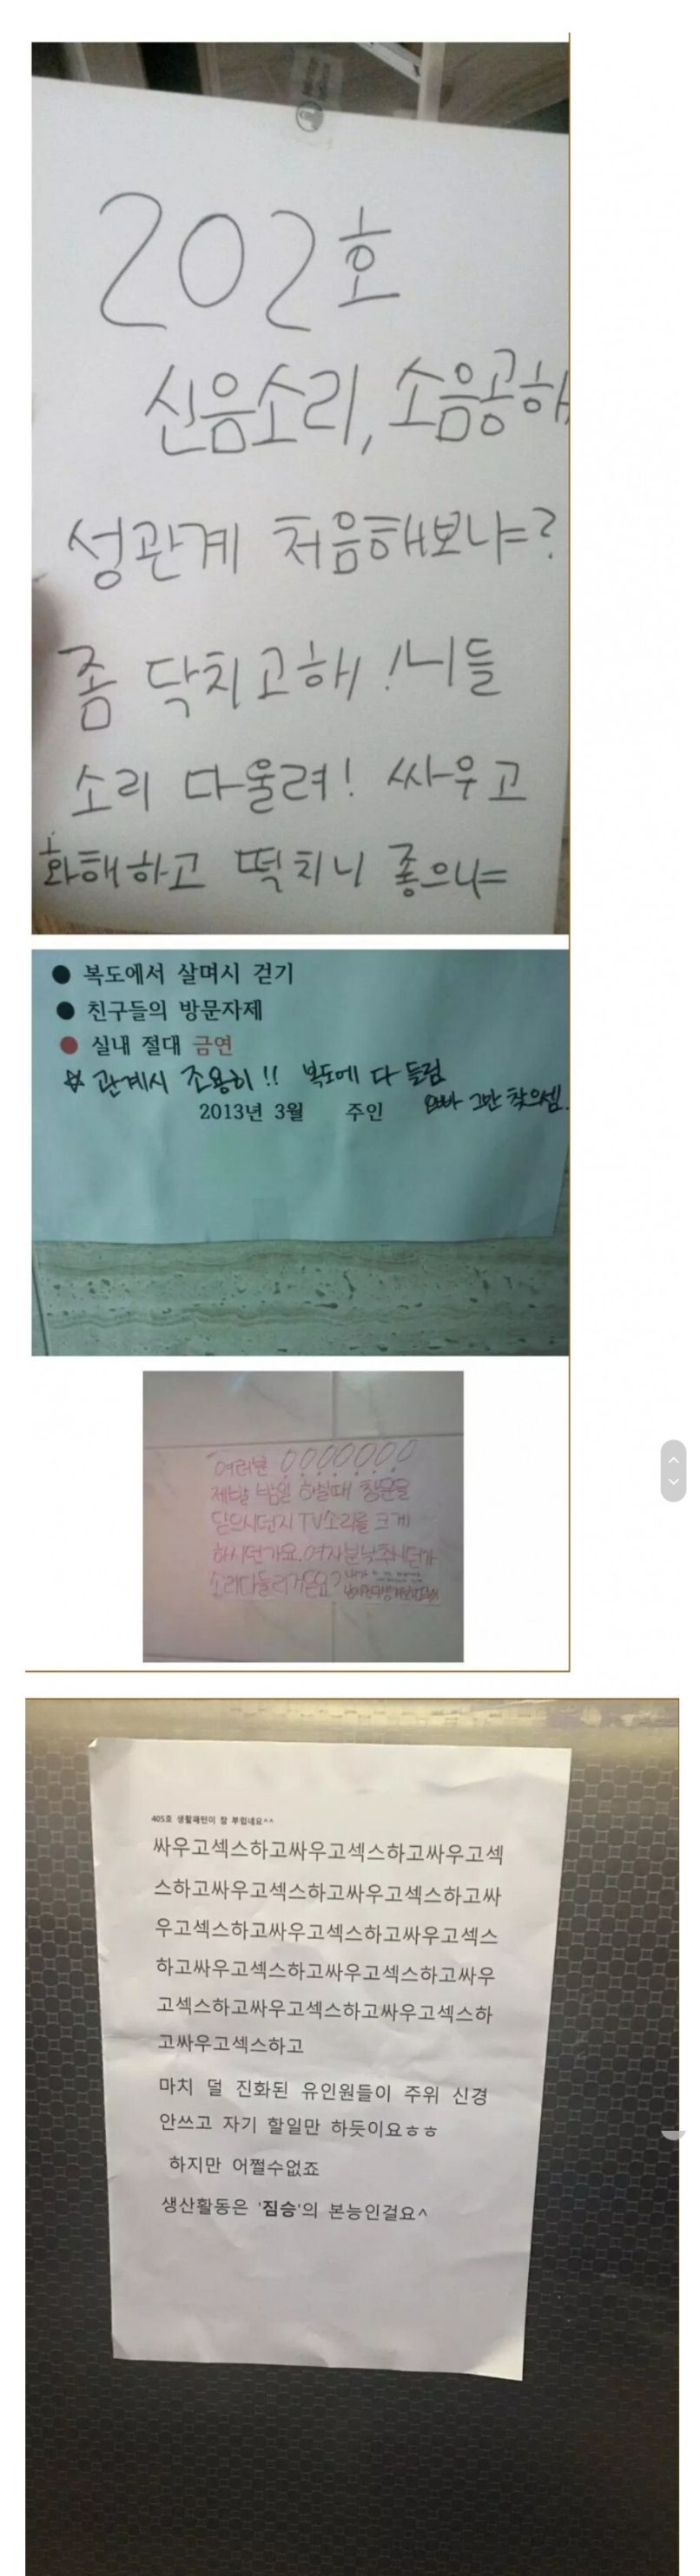 202호
신음소리, 소음공해
성관계 처음해보냐?
좀 닥치고해! 니들
소리 다울려! 싸우고
화해하고 떡치니 좋으냐
● 복도에서 살며시 걷기
● 친구들의 방문자제
● 실내 절대 금연
☆ 관계시 조용히!! 복도에 다 들림
오빠 그만 찾으셈.
2013년 3월 주인
여러분
제발 밤일 하실때 창문을
닫으시던지 TV소리를 크게
하시던가요. 여자분낮추시던가
소리다들리거든요?
405호 생활패턴이 참 부럽네요^^
싸우고섹스하고싸우고섹스하고싸우고섹
스하고싸우고섹스하고싸우고섹스하고싸
우고섹스하고싸우고섹스하고싸우고섹스
하고싸우고섹스하고싸우고섹스하고싸우
고섹스하고싸우고섹스하고싸우고섹스하
고싸우고섹스하고
마치 덜 진화된 유인원들이 주위 신경
안쓰고 자기 할일만 하듯이요ㅎㅎ
하지만 어쩔수없죠
생산활동은 '짐승'의 본능인걸요^